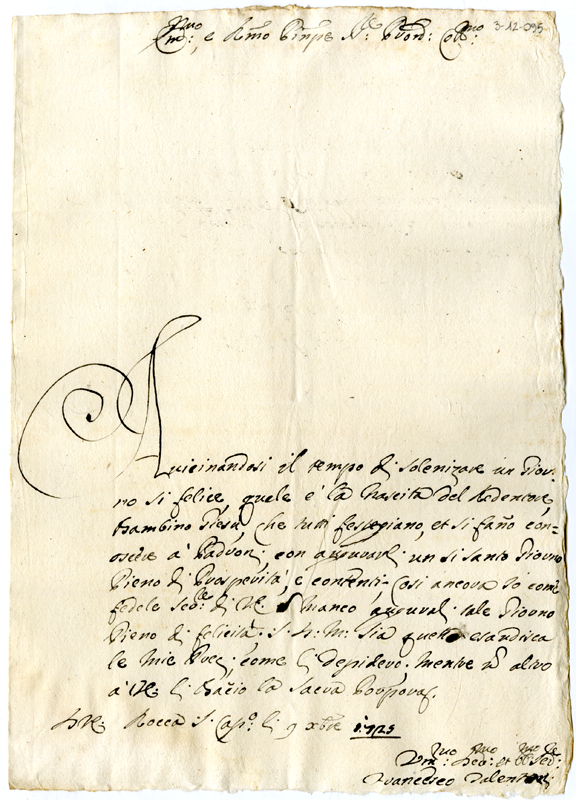 Em:mo, e R.mo Prnpe Sr: Pron: Col.mo 3-12-095
Avicinandosi il tempo di solenizare un Gior-
no si felice, quale è la Nascita del Redentore
Bambino Giesu, che tutti festegiano, et si fano con=
oscere à Padron; con agurarli un si santo Giorno
Pieno di Prosperità, e contenti. Cosi ancora Io come
fedele di VE. manco agurarli tale Giorno
Pieno di felicità. S. D. M. sia quella esaudisca
le mie Prec; come li desidero. Mentre altro
à VE li Bacio la Sacra Porpora.
Rocca S. Cas:o li 9 xbre 1725
Um:mo et
Francesco Valentini